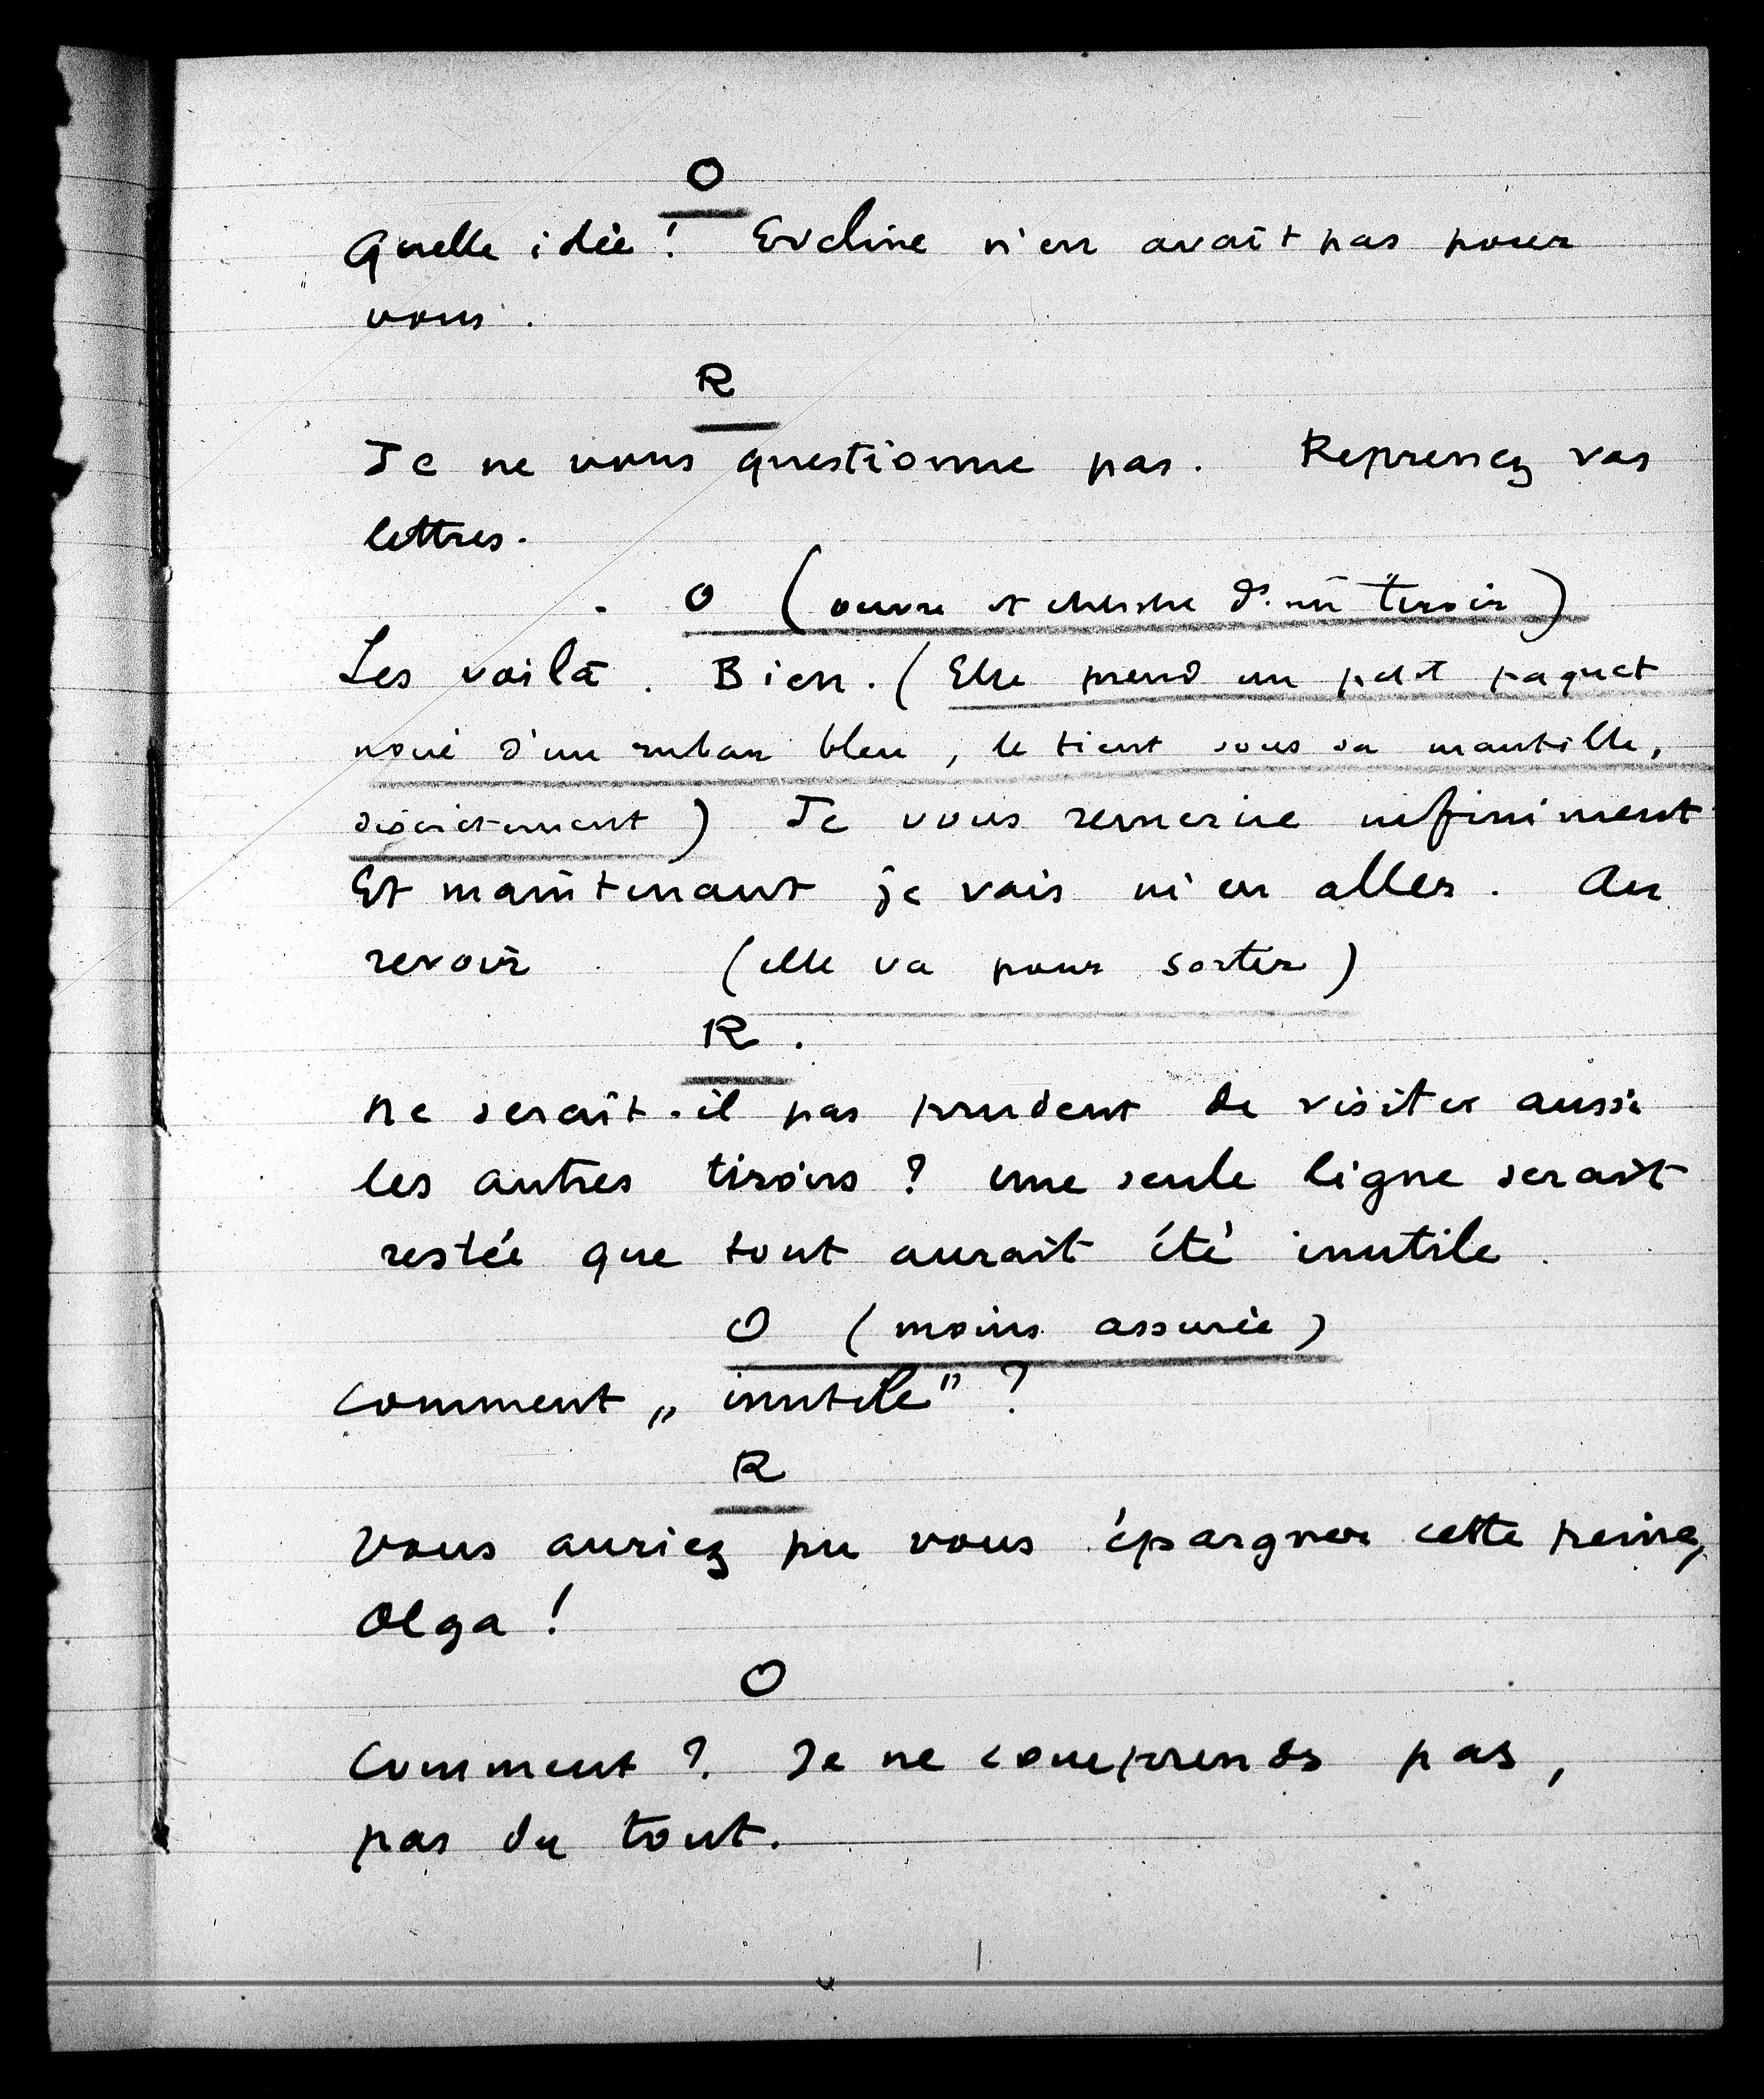 O
Quelle idée ! Eveline n'en avait pas pour
vous.
R
Je ne vous questionne pas. Reprenez vos
lettres.
O (ouvre et cherche ds. un tiroir)
Les voilà. Bien. (Elle prend un petit paquet
noué d'un ruban bleu, le tient sous sa mantille,
discrètement) Je vous remercie infiniment
Et maintenant je vais m'en aller. Au
revoir. (elle va pour sortir)
R.
Ne serait-il pas prudent de visiter aussi
les autres tiroirs ? une seule ligne serait
restée que tout aurait été inutile.
O (moins assurée)
Comment „inutile" ?
R
Vous auriez pu vous épargner cette peine,
Olga !
O
Comment ? Je ne comprends pas,
pas du tout.